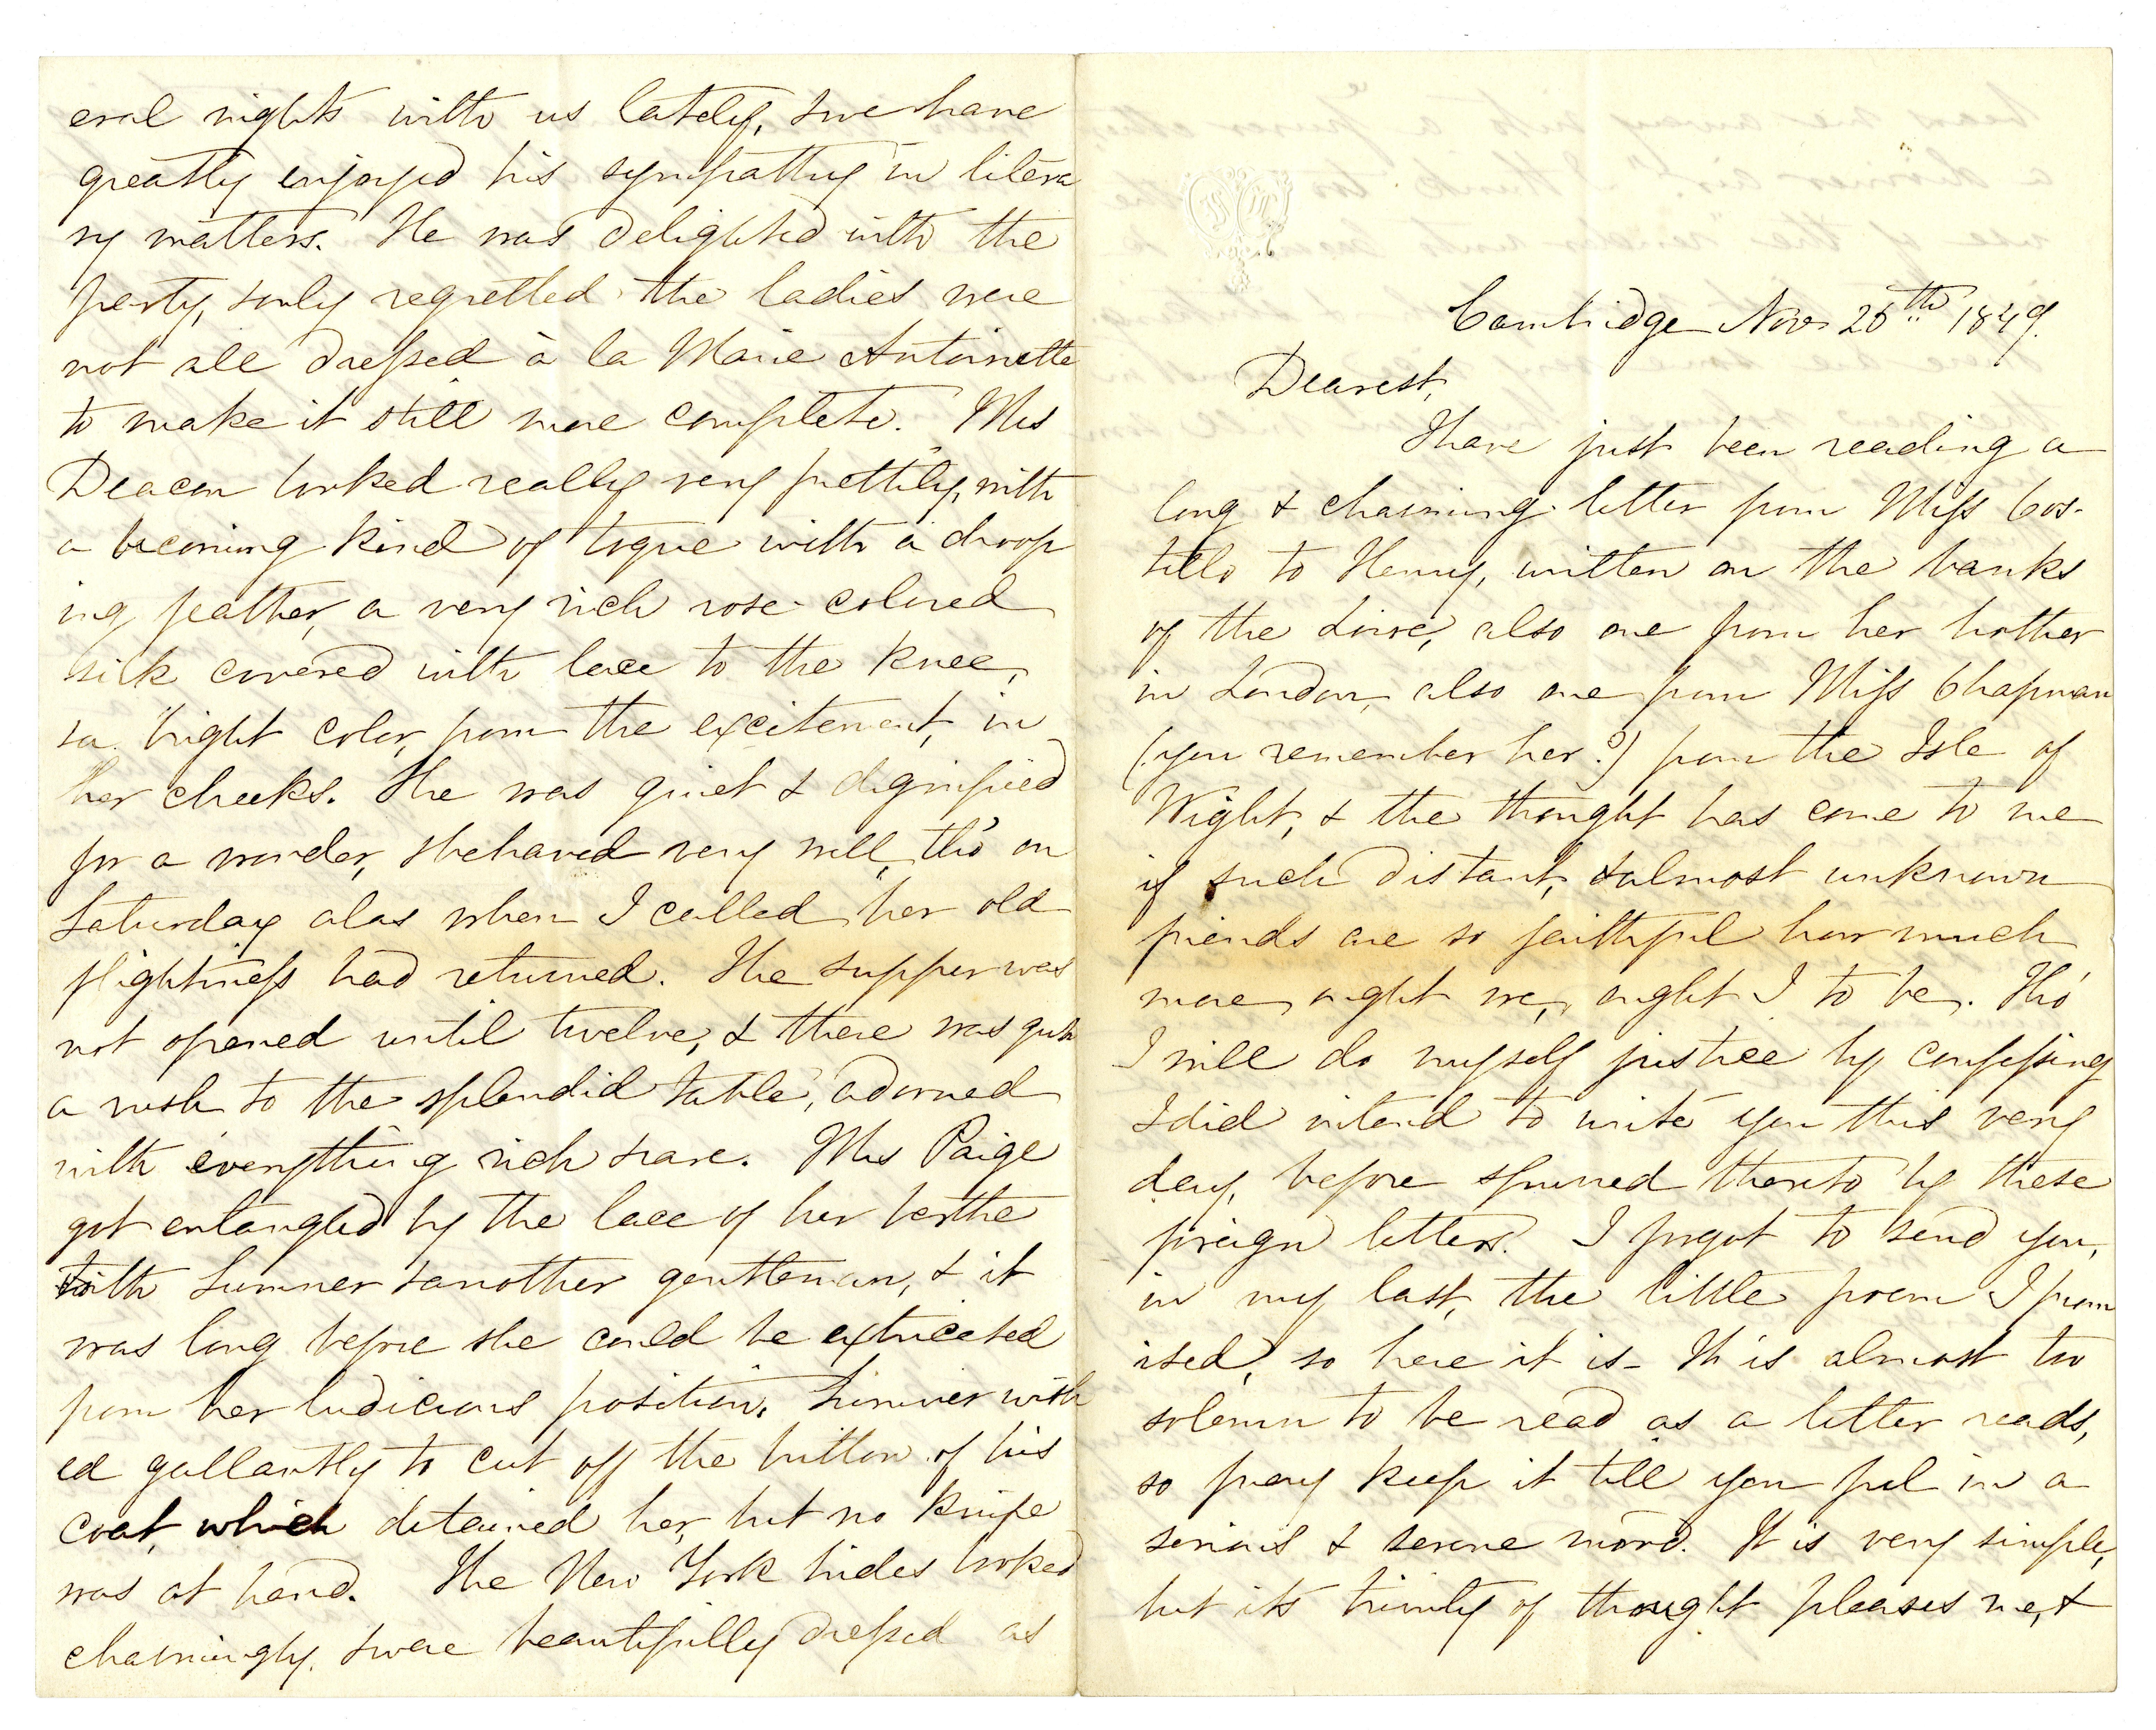 Cambridge Novr 26th 1849.
Dearest,
I have just been reading a
long & charming letter from Miss Cos-
tello to Henry, written on the banks
of the Loire, also one from her brother
in London, also one from Miss Chapman
(you remember her?) from the Isle of
Wight, & the thought has come to me
if such distant, & almost unknown
friends are so faithful how much
more ought we, ought I to be. Tho'
I will do myself justice by confessing
I did intend to write you this very
day, before spurred thereto by these
foreign letters. I forgot to send you,
in my last, the little poem I prom
ised, so here it is – It is almost too
solemn to be read as a letter reads,
so pray keep it till you feel in a
serious & serene mood. It is very simple,
but its trinity of thought pleases me, &
eral nights with us lately, & we have
greatly enjoyed his sympathy in litera
ry matters. He was delighted with the
party, & only regretted the ladies were
not all dressed à la Marie Antoinette
to make it still more complete. Mrs
Deacon looked really very prettily, with
a becoming kind of toque with a droop
ing feather, a very rich rose-colored
silk covered with lace to the knee,
& a bright color, from the excitement, in
her cheeks. She was quiet & dignified
for a wonder, & behaved very well, tho' on
Saturday alas when I called her old
flightiness had returned. The supper was
not opened until twelve, & there was quite
a rush to the splendid table, adorned
with everything rich & rare. Mrs Paige
got entangled by the lace of her berthe
with Sumner & another gentleman, & it
was long before she could be extricated
from her ludicrous position. Sumner wish
ed gallantly to cut off the button of his
coat, which detained her, but no knife
was at hand. The New York brides looked
charmingly, & were beautifully dressed as